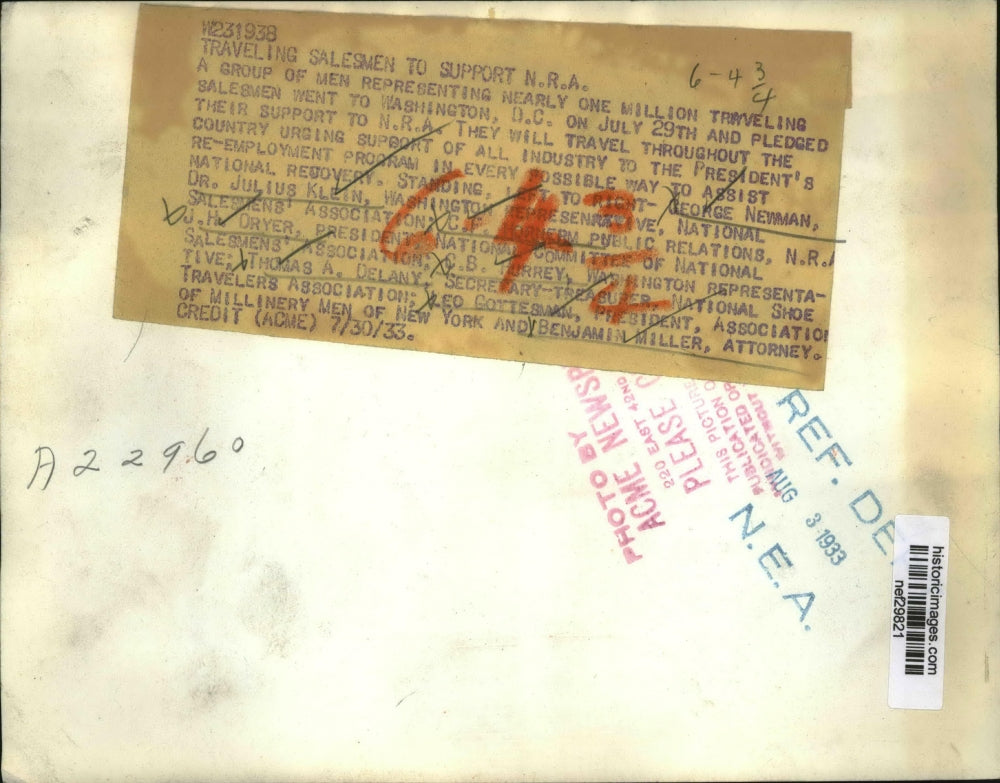 W231938
TRAVELING SALESMEN TO SUPPORT N.R.A.
A GROUP OF MEN REPRESENTING NEARLY ONE MILLION TRAVELING
SALESMEN WENT TO WASHINGTON, D.C. ON JULY 29TH AND PLEDGED
THEIR SUPPORT TO N.R.A. THEY WILL TRAVEL THROUGHOUT THE
COUNTRY URGING SUPPORT OF ALL INDUSTRY TO THE PRESIDENT'S
RE-EMPLOYMENT PROGRAM IN EVERY POSSIBLE WAY TO ASSIST
NATIONAL RECOVERY. STANDING, LEFT TO RIGHT- GEORGE NEWMAN,
DR. JULIUS KLEIN, WASHINGTON REPRESENTATIVE, NATIONAL
SALESMENS' ASSOCIATION; C. PUBLIC RELATIONS, N.R.A
J.H. DRYER, PRESIDENT, NATIONAL COMMITTEE OF NATIONAL
SALESMENS' ASSOCIATION; C.B. WASHINGTON REPRESENTA-
TIVE; THOMAS A. DELANY, SECRETARY-TREASURER, NATIONAL SHOE
TRAVELERS ASSOCIATION; LEO GOTTESMAN, PRESIDENT, ASSOCIATION
OF MILLINERY MEN OF NEW YORK AND BENJAMIN MILLER, ATTORNEY.
CREDIT (ACME) 7/30/33.
6-4 3/4
6-4 3/4
A22960
PHOTO BY
ACME NEWSP
220 EAST 42ND
PLEASE C
THIS PICTURE
PUBLICATION O
SYNDICATED OR
WITHOUT
REF. DE
AUG 3 1933
N.E.A.
historicimages.com
nef29821